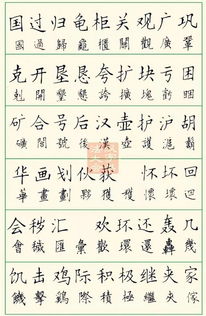 国过归龟柜关观广巩
國過歸龜櫃關觀廣鞏
克开垦恳夸扩块亏困
剋開墾懇誇擴塊虧睏
矿合号后汉壶护沪胡
礦閤號後漢壺護滬鬍
华画划伙获怀坏回
華畫劃夥獲穫懷壞迴
会秽汇欢环还轰几
會穢匯彙歡環還轟幾
饥击鸡际积极继夹家
饑擊鷄際積極繼夾傢